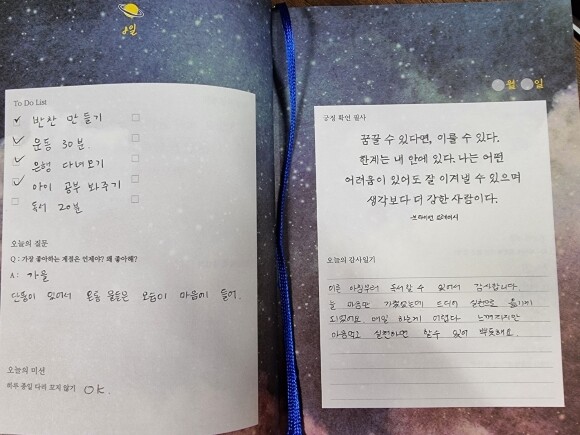 일
To Do List
반찬 만들기
운동 30분.
은행 다녀오기
아이 공부 봐주기
독서 20분
오늘의 질문
Q : 가장 좋아하는 계절은 언제야? 왜 좋아해?
A : 가을
단풍이 있어서 오름 물들은 모습이 마음에 들어.
오늘의 미션
하루 종일 다리 꼬지 않기 OK.
월 일
긍정 확언 필사
꿈꿀 수 있다면, 이룰 수 있다.
한계는 내 안에 있다. 나는 어떤
어려움이 있어도 잘 이겨낼 수 있으며
생각보다 더 강한 사람이다.
오늘의 감사일기
이른 아침부터 독서할 수 있어서 감사합니다.
늘 마음만 가졌었는데 드디어 실천으로 옮기게
되었어요 매일 하는게 어렵다 느껴지지만
마음먹고 실천하면 할 수 있어 뿌듯해요.